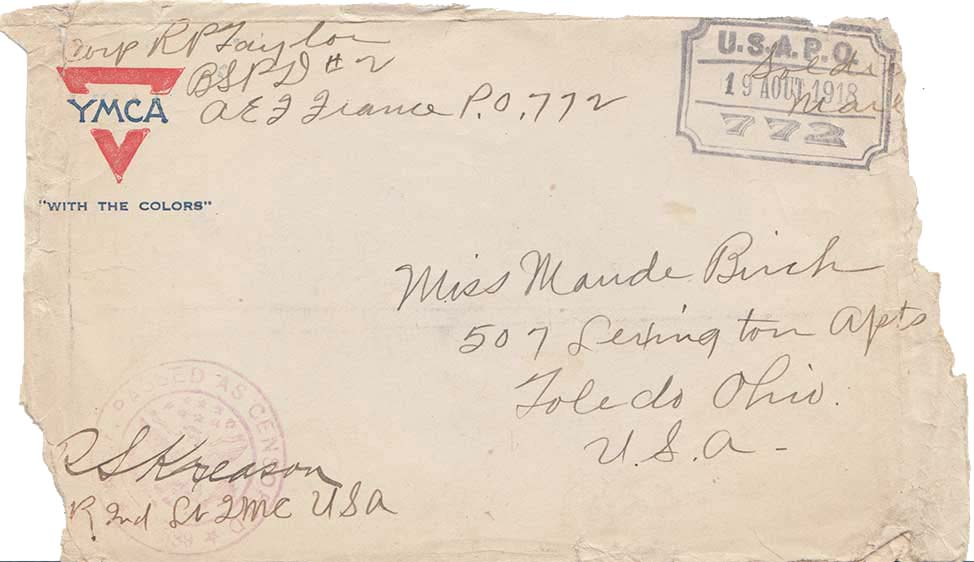 Corp R P Taylor
BSPD #2
A E F France P.O. 772
YMCA
"WITH THE COLORS"
U.S.A.P.O.
19 AOUT 1918
772
Soldier's
Mail
Miss Maude Birch
507 Lexington Apts
Toledo Ohio.
U.S.A -
PASSED AS CENSORED
R S Kreason
R 2nd Lt QMC USA